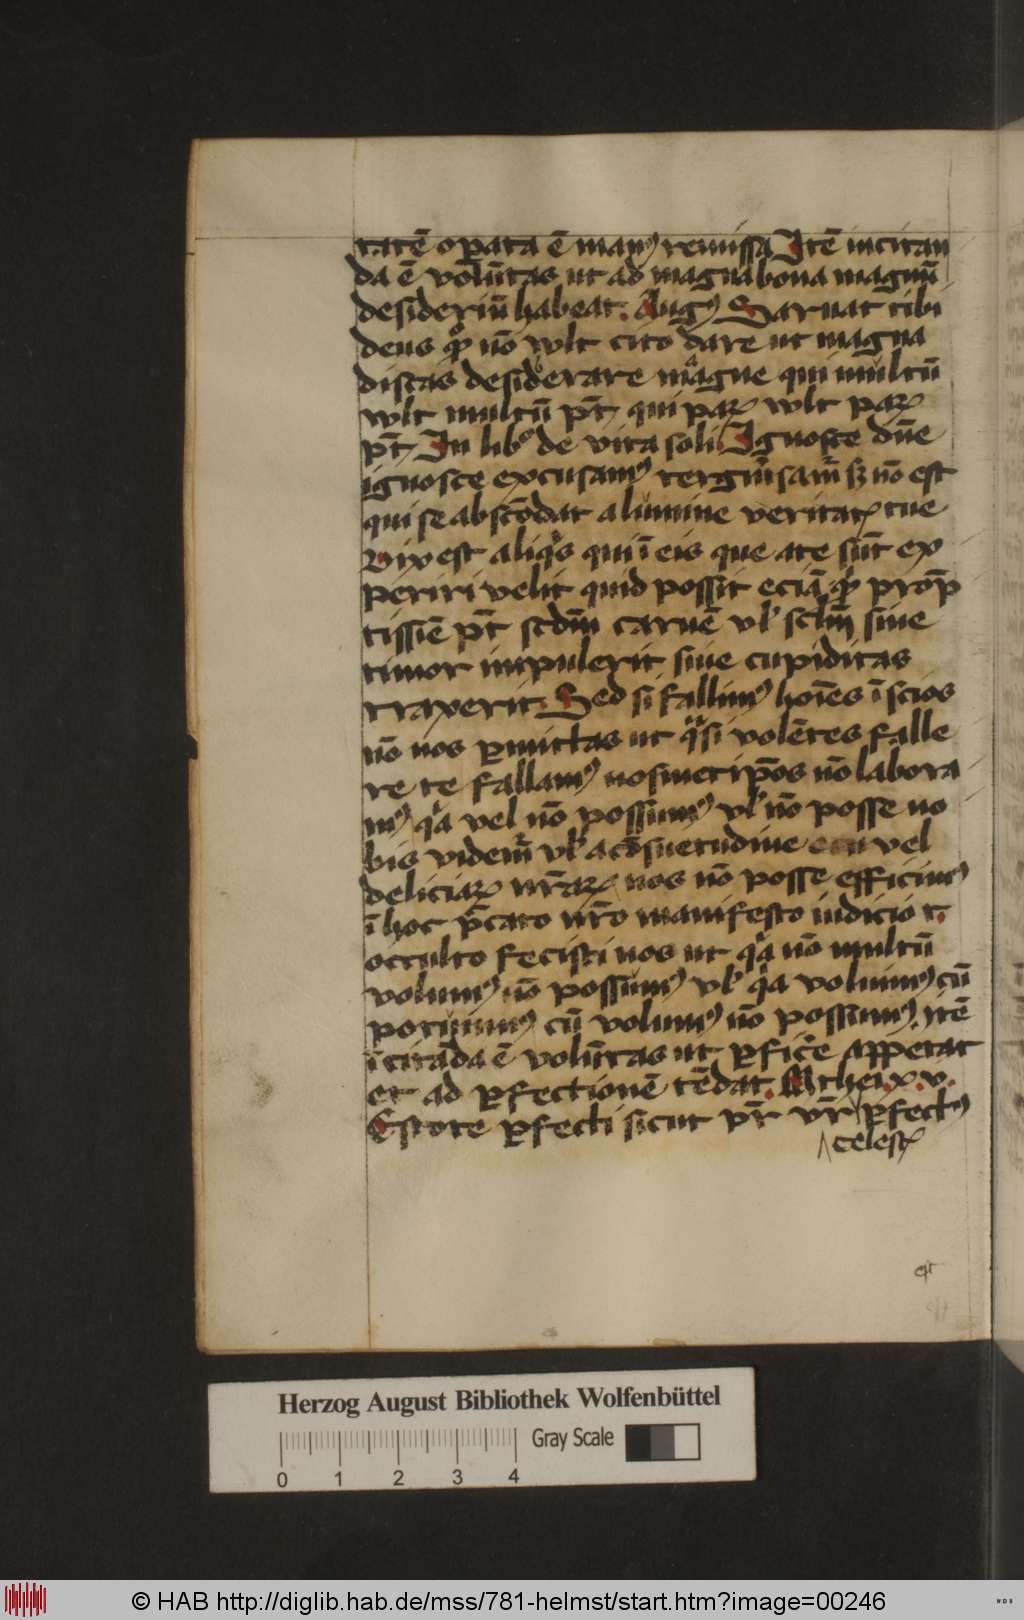 tatē oꝑata ē manꝰ remissa Itē incitan
da ē volūtas ut ad magna bona magnū
desideriū habeat. Augꝰ Seruat tibi
deus qͦ nō wlt cito dare ut magna
discas desiderare magne qui multū
wlt multū pt̄, qui paꝝ wlt paꝝ
pt̄, In libͦ de vita soli Ignosce dn̄e
ignosce excusamꝰ tergiūsam̄ sꝫ nō est
qui se abscōdat a lumine veritatꝭ tue
Vix est aliqͥs qui ī eis que ate sūt ex
periri velit quid possit eciā qͦ prōp
tissīe pt̄ scdm̄ carnē vl̓ sclm̄ siue
timor impulerit siue cupiditas
traxerit. Sed si fallimꝰ hoīes īscios
nō nos ꝑmittas ut qͣsi volētes falle
re te fallamꝰ nosmet ip̄os nō labora
mꝰ qͥa vel nō possumꝰ vl̓ nō posse no
bis videm̄ vl̓ a cōsuetudine vel
deliciaꝝ nr̄aꝝ nos nō posse efficimꝰ
ī hoc pc̄cato nr̄o manifesto iudicio ⁊
occulto fecisti nos ut qͥa nō multū
volumꝰ nō possumꝰ vl̓ qͥa voluimꝰ cū
potuimꝰ cū volumꝰ nō possumꝰ. Itē
īcitāda ē volūtas ut ꝑfice appetat
et ad ꝑfectionē tēdat. Mthei. x. v.
Estote ꝑfecti sicut pr̄ vr̄ ꝑfectꝰ
celestꝭ
Herzog August Bibliothek Wolfenbüttel
0 1 2 3 4 Gray Scale
© HAB http://diglib.hab.de/mss/781-helmst/start.htm?image=00246